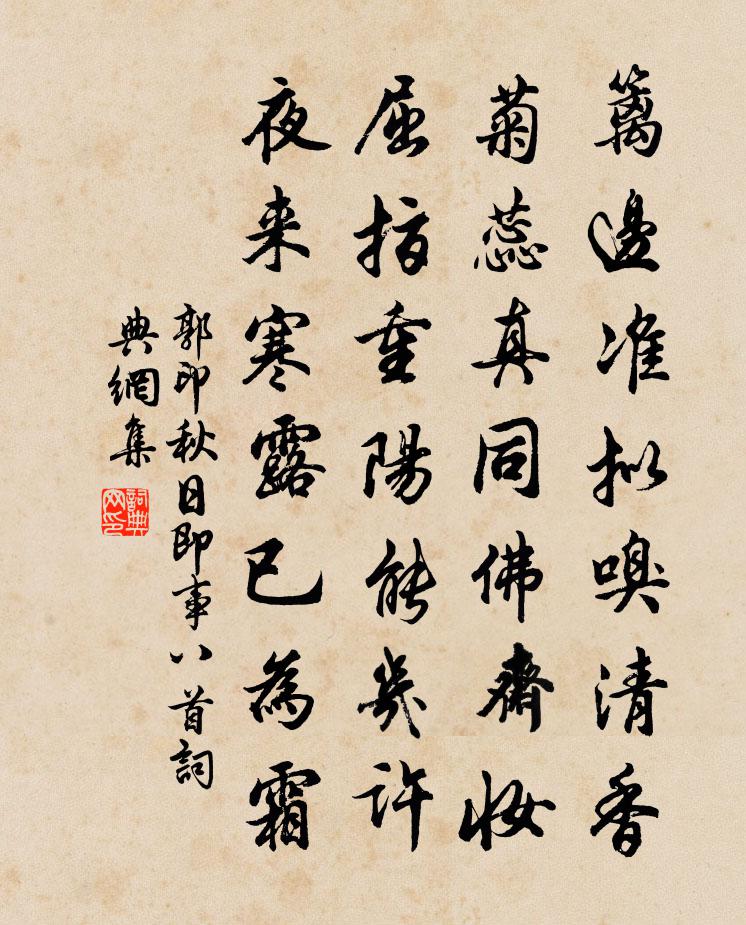 籬邊准拟嗅清香
菊蕊真同佛齋妝
屈指重陽能幾許
夜来寒露已為霜
郭印秋日即事八首詞
典網集
詞典
网印